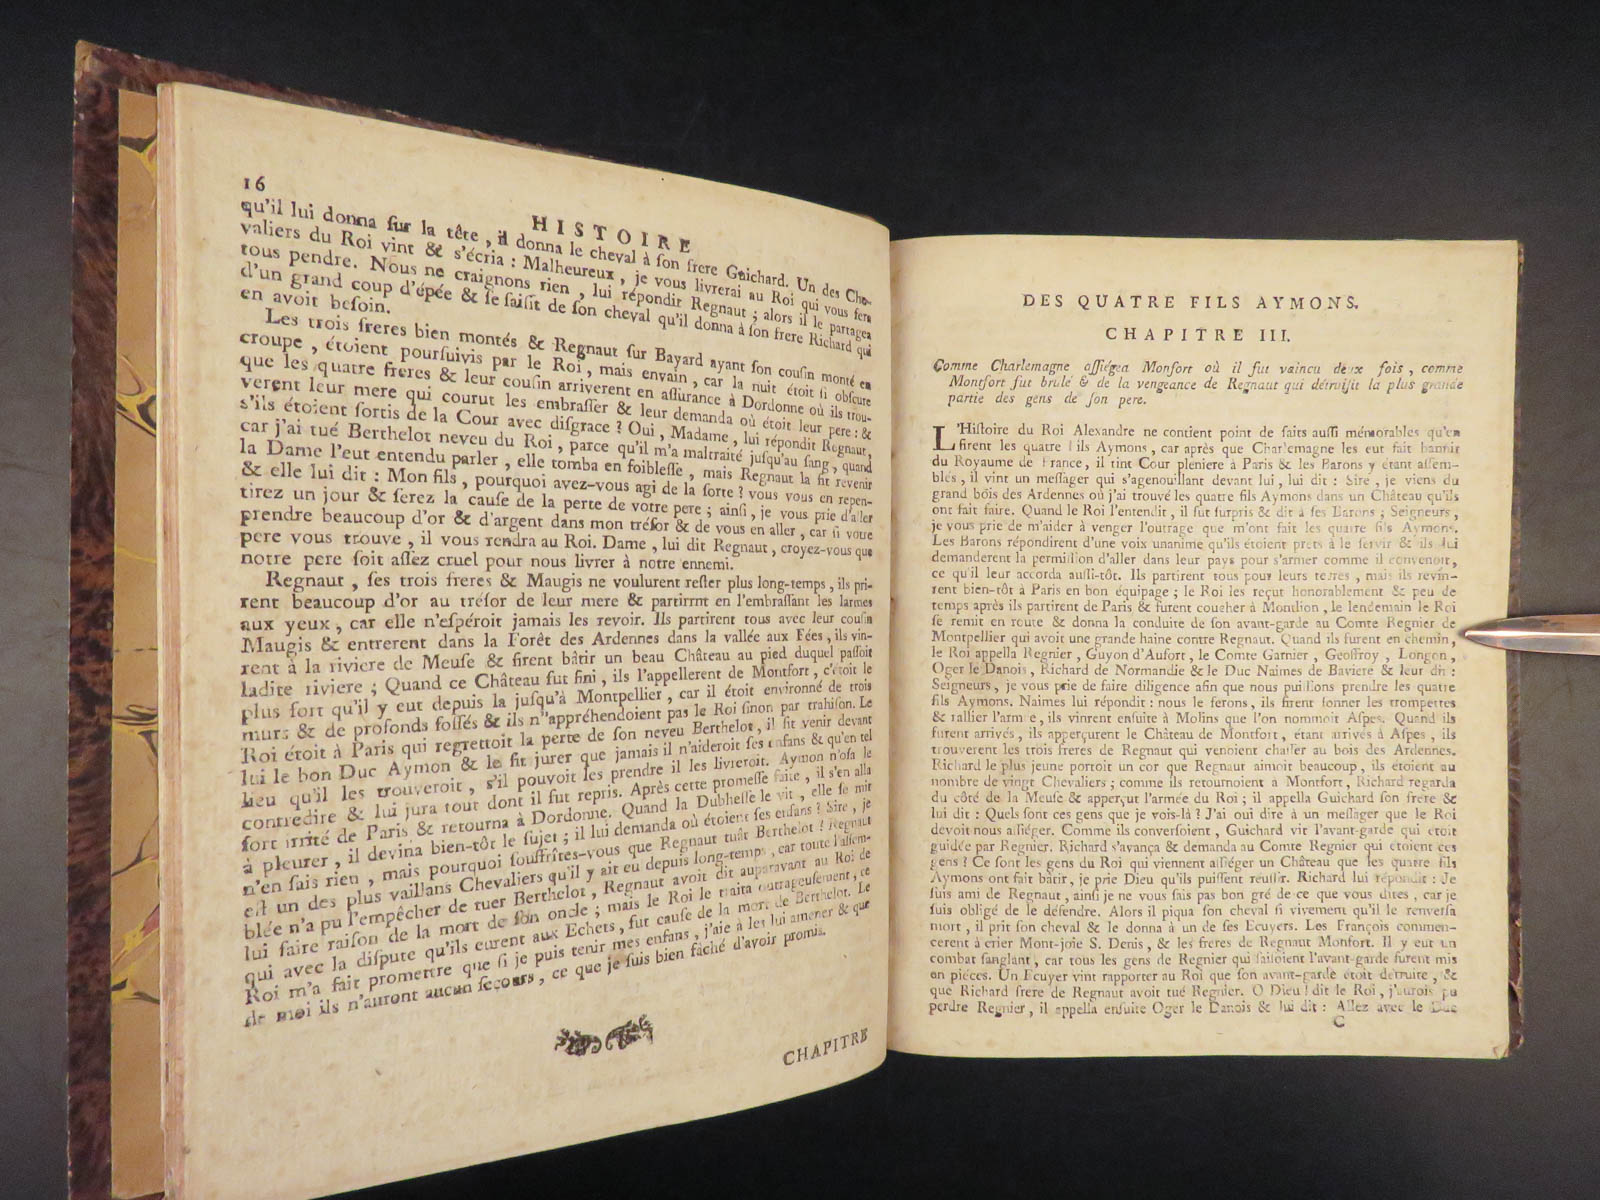 16
HISTOIRE
qu'il lui donna ſur la tête, il donna le cheval à ſon frere Guichard. Un des Che-
valiers du Roi vint & s'écria : Malheureux, je vous livrerai au Roi qui vous fera
tous pendre. Nous ne craignons rien, lui répondit Regnaut ; alors il le partagea
d'un grand coup d'épée & ſe ſaiſit de ſon cheval qu'il donna à ſon frere Richard qui
en avoit beſoin.
Les trois freres bien montés & Regnaut ſur Bayard ayant ſon couſin monté en
croupe, étoient pourſuivis par le Roi, mais envain, car la nuit étoit ſi obſcure
que les quatre freres & leur couſin arriverent en aſſurance à Dordonne où ils trou-
verent leur mere qui courut les embraſſer & leur demanda où étoit leur pere : &
s'ils étoient ſortis de la Cour avec diſgrace ? Oui, Madame, lui répondit Regnaut,
car j'ai tué Berthelot neveu du Roi, parce qu'il m'a maltraité juſqu'au ſang, quand
la Dame l'eut entendu parler, elle tomba en foibleſſe, mais Regnaut la fit revenir
& elle lui dit : Mon fils, pourquoi avez-vous agi de la ſorte ? vous vous en repen-
tirez un jour & ſerez la cauſe de la perte de votre pere ; ainſi, je vous prie d'aller
prendre beaucoup d'or & d'argent dans mon tréſor & de vous en aller, car ſi votre
pere vous trouve, il vous rendra au Roi. Dame, lui dit Regnaut, croyez-vous que
notre pere ſoit aſſez cruel pour nous livrer à notre ennemi.
Regnaut, ſes trois freres & Maugis ne voulurent reſter plus long-temps, ils pri-
rent beaucoup d'or au tréſor de leur mere & partirrnt en l'embraſſant les larmes
aux yeux, car elle n'eſpéroit jamais les revoir. Ils partirent tous avec leur couſin
Maugis & entrerent dans la Forêt des Ardennes dans la vallée aux Fées, ils vin-
rent à la riviere de Meuſe & firent bâtir un beau Château au pied duquel paſſoit
ladite riviere ; Quand ce Château fut fini, ils l'appellerent de Montfort, c'étoit le
plus fort qu'il y eut depuis là juſqu'à Montpellier, car il étoit environné de trois
murs & de profonds foſſés & ils n''appréhendoient pas le Roi ſinon par trahiſon. Le
Roi étoit à Paris qui regrettoit la perte de ſon neveu Berthelot, il fit venir devant
lui le bon Duc Aymon & le fit jurer que jamais il n'aideroit ſes enfans & qu'en tel
lieu qu'il les trouveroit, s'il pouvoit les prendre il les livreroit. Aymon n'oſa le
contredire & lui jura tout dont il fut repris. Après cette promeſſe faite, il s'en alla
fort irrité de Paris & retourna à Dordonne. Quand la Dubheſſe le vit, elle ſe mit
à pleurer, il devina bien-tôt le ſujet ; il lui demanda où étoient ſes enfans ? Sire, je
n'en ſais rien, mais pourquoi ſouffrîtes-vous que Regnaut tuât Berthelot ? Regnaut
eſt un des plus vaillans Chevaliers qu'il y ait eu depuis long-temps, car toute l'aſſem-
blée n'a pu l'empêcher de tuer Berthelot, Regnaut avoit dit auparavant au Roi de
lui faire raiſon de la mort de ſon oncle ; mais le Roi le traita outrageuſement, ce
qui avec la diſpute qu'ils eurent aux Echets, fut cauſe de la mort de Berthelot. Le
Roi m'a fait promettre que ſi je puis tenir mes enfans, j'aie à les lui amener & que
de moi ils n'auront aucun ſecours, ce que je ſuis bien fâché d'avoir promis.
CHAPITRE
DES QUATRE FILS AYMONS.
CHAPITRE III.
Comme Charlemagne aſſiégea Monfort où il fut vaincu deux fois, comme
Montfort fut brulé & de la vengeance de Regnaut qui détruiſit la plus grande
partie des gens de ſon pere.
L'Hiſtoire du Roi Alexandre ne contient point de faits auſſi mémorables qu'en
firent les quatre Fils Aymons, car après que Charlemagne les eut fait bannir
du Royaume de France, il tint Cour pleniere à Paris & les Barons y étant aſſem-
blés, il vint un meſſager qui s'agenouillant devant lui, lui dit : Sire, je viens du
grand bois des Ardennes où j'ai trouvé les quatre fils Aymons dans un Château qu'ils
ont fait faire. Quand le Roi l'entendit, il fut ſurpris & dit à ſes Barons ; Seigneurs,
je vous prie de m'aider à venger l'outrage que m'ont fait les quatre fils Aymons.
Les Barons répondirent d'une voix unanime qu'ils étoient prets à le ſervir & ils lui
demanderent la permiſſion d'aller dans leur pays pour s'armer comme il convenoit,
ce qu'il leur accorda auſſi-tôt. Ils partirent tous pour leurs terres, mais ils revin-
rent bien-tôt à Paris en bon équipage ; le Roi les reçut honorablement & peu de
temps après ils partirent de Paris & furent coucher à Montlion, le lendemain le Roi
ſe remit en route & donna la conduite de ſon avant-garde au Comte Regnier de
Montpellier qui avoit une grande haine contre Regnaut. Quand ils furent en chemin,
le Roi appella Regnier, Guyon d'Aufort, le Comte Garnier, Geoffroy, Longon,
Oger le Danois, Richard de Normandie & le Duc Naimes de Baviere & leur dit :
Seigneurs, je vous prie de faire diligence afin que nous puiſſions prendre les quatre
fils Aymons. Naimes lui répondit : nous le ferons, ils firent ſonner les trompettes
& rallier l'armée, ils vinrent enſuite à Molins que l'on nommoit Aſpes. Quand ils
furent arrivés, ils apperçurent le Château de Montfort, étant arrivés à Aſpes, ils
trouverent les trois freres de Regnaut qui venoient chaſſer au bois des Ardennes.
Richard le plus jeune portoit un cor que Regnaut aimoit beaucoup, ils étoient au
nombre de vingt Chevaliers ; comme ils retournoient à Montfort, Richard regarda
du côté de la Meuſe & apperçut l'armée du Roi ; il appella Guichard ſon frere &
lui dit : Quels ſont ces gens que je vois-là ? J'ai oui dire à un meſſager que le Roi
devoit nous aſſiéger. Comme ils converſoient, Guichard vit l'avant-garde qui étoit
guidée par Regnier. Richard s'avança & demanda au Comte Regnier qui étoient ces
gens ? Ce ſont les gens du Roi qui viennent aſſiéger un Château que les quatre fils
Aymons ont fait bâtir, je prie Dieu qu'ils puiſſent réuſſir. Richard lui répondit : Je
ſuis ami de Regnaut, ainſi je ne vous ſais pas bon gré de ce que vous dites, car je
ſuis obligé de le défendre. Alors il piqua ſon cheval ſi vivement qu'il le renverſa
mort, il prit ſon cheval & le donna à un de ſes Ecuyers. Les François commen-
cerent à crier Mont-joie S. Denis, & les freres de Regnaut Monfort. Il y eut un
combat ſanglant, car tous les gens de Regnier qui faiſoient l'avant-garde furent mis
en pieces. Un Ecuyer vint rapporter au Roi que ſon avant-garde étoit détruite, &
que Richard frere de Regnaut avoit tué Regnier. O Dieu ! dit le Roi, j'aurois pu
perdre Regnier, il appella enſuite Oger le Danois & lui dit : Allez avec le Duc
C